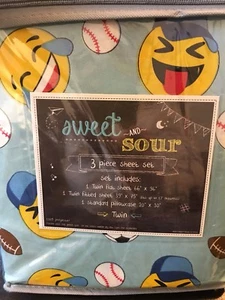 sweet
AND
sour
3 piece sheet set
set includes:
1 Twin flat sheet 66" x 96"
1 Twin fitted sheet 39" x 75"
1 standard pillowcase 20" x 30"
Twin